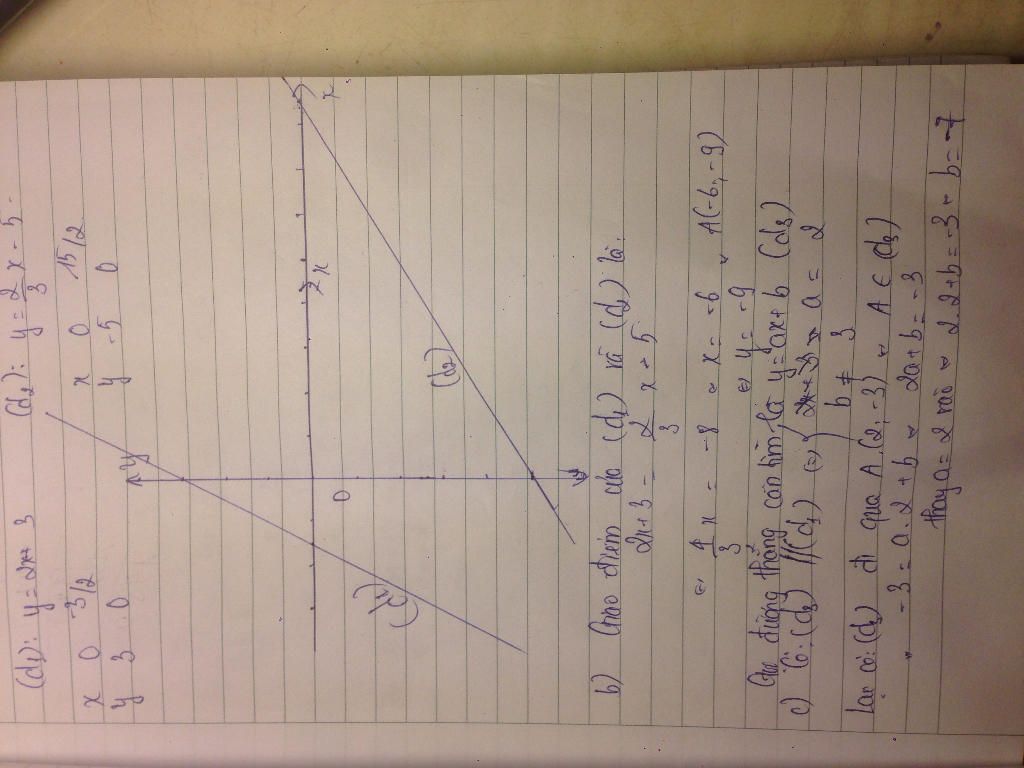 (d₁): y = 2x + 3 (d₂): y = 2/3 x - 5
x 0 -3/2 x 0 15/2
y 3 0 y -5 0
y
(d₁)
O
(d₂)
x
x
b) Giao điểm của (d₁) và (d₂) là:
2x+3 = 2/3 x - 5
⇔ 4/3 x = -8 ⇔ x = -6
⇔ y = -9 A(-6, -9)
Gọi đường thẳng cần tìm là y = ax + b (d₃)
c) Có: (d₃) // (d₁) ⇔ { a = 2
b ≠ 3
Lại có: (d₃) đi qua A(2; -3) ⇒ A ∈ (d₃)
⇒ -3 = a.2 + b ⇒ 2a + b = -3
thay a = 2 vào ⇒ 2.2 + b = -3 ⇔ b = -7